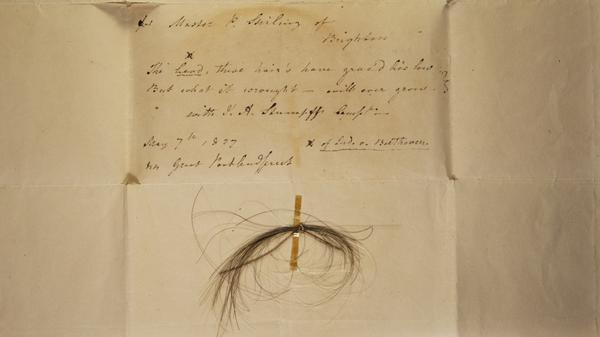 for Master P. Stirling of
Brighton
The head, these hair's have grac'd lies low
But what it wrought – will ever grow.
with J. A. Stumpff's Compts.
May 7th 1827
44 Great Portland Street
x of Ludv. v. Beethoven.